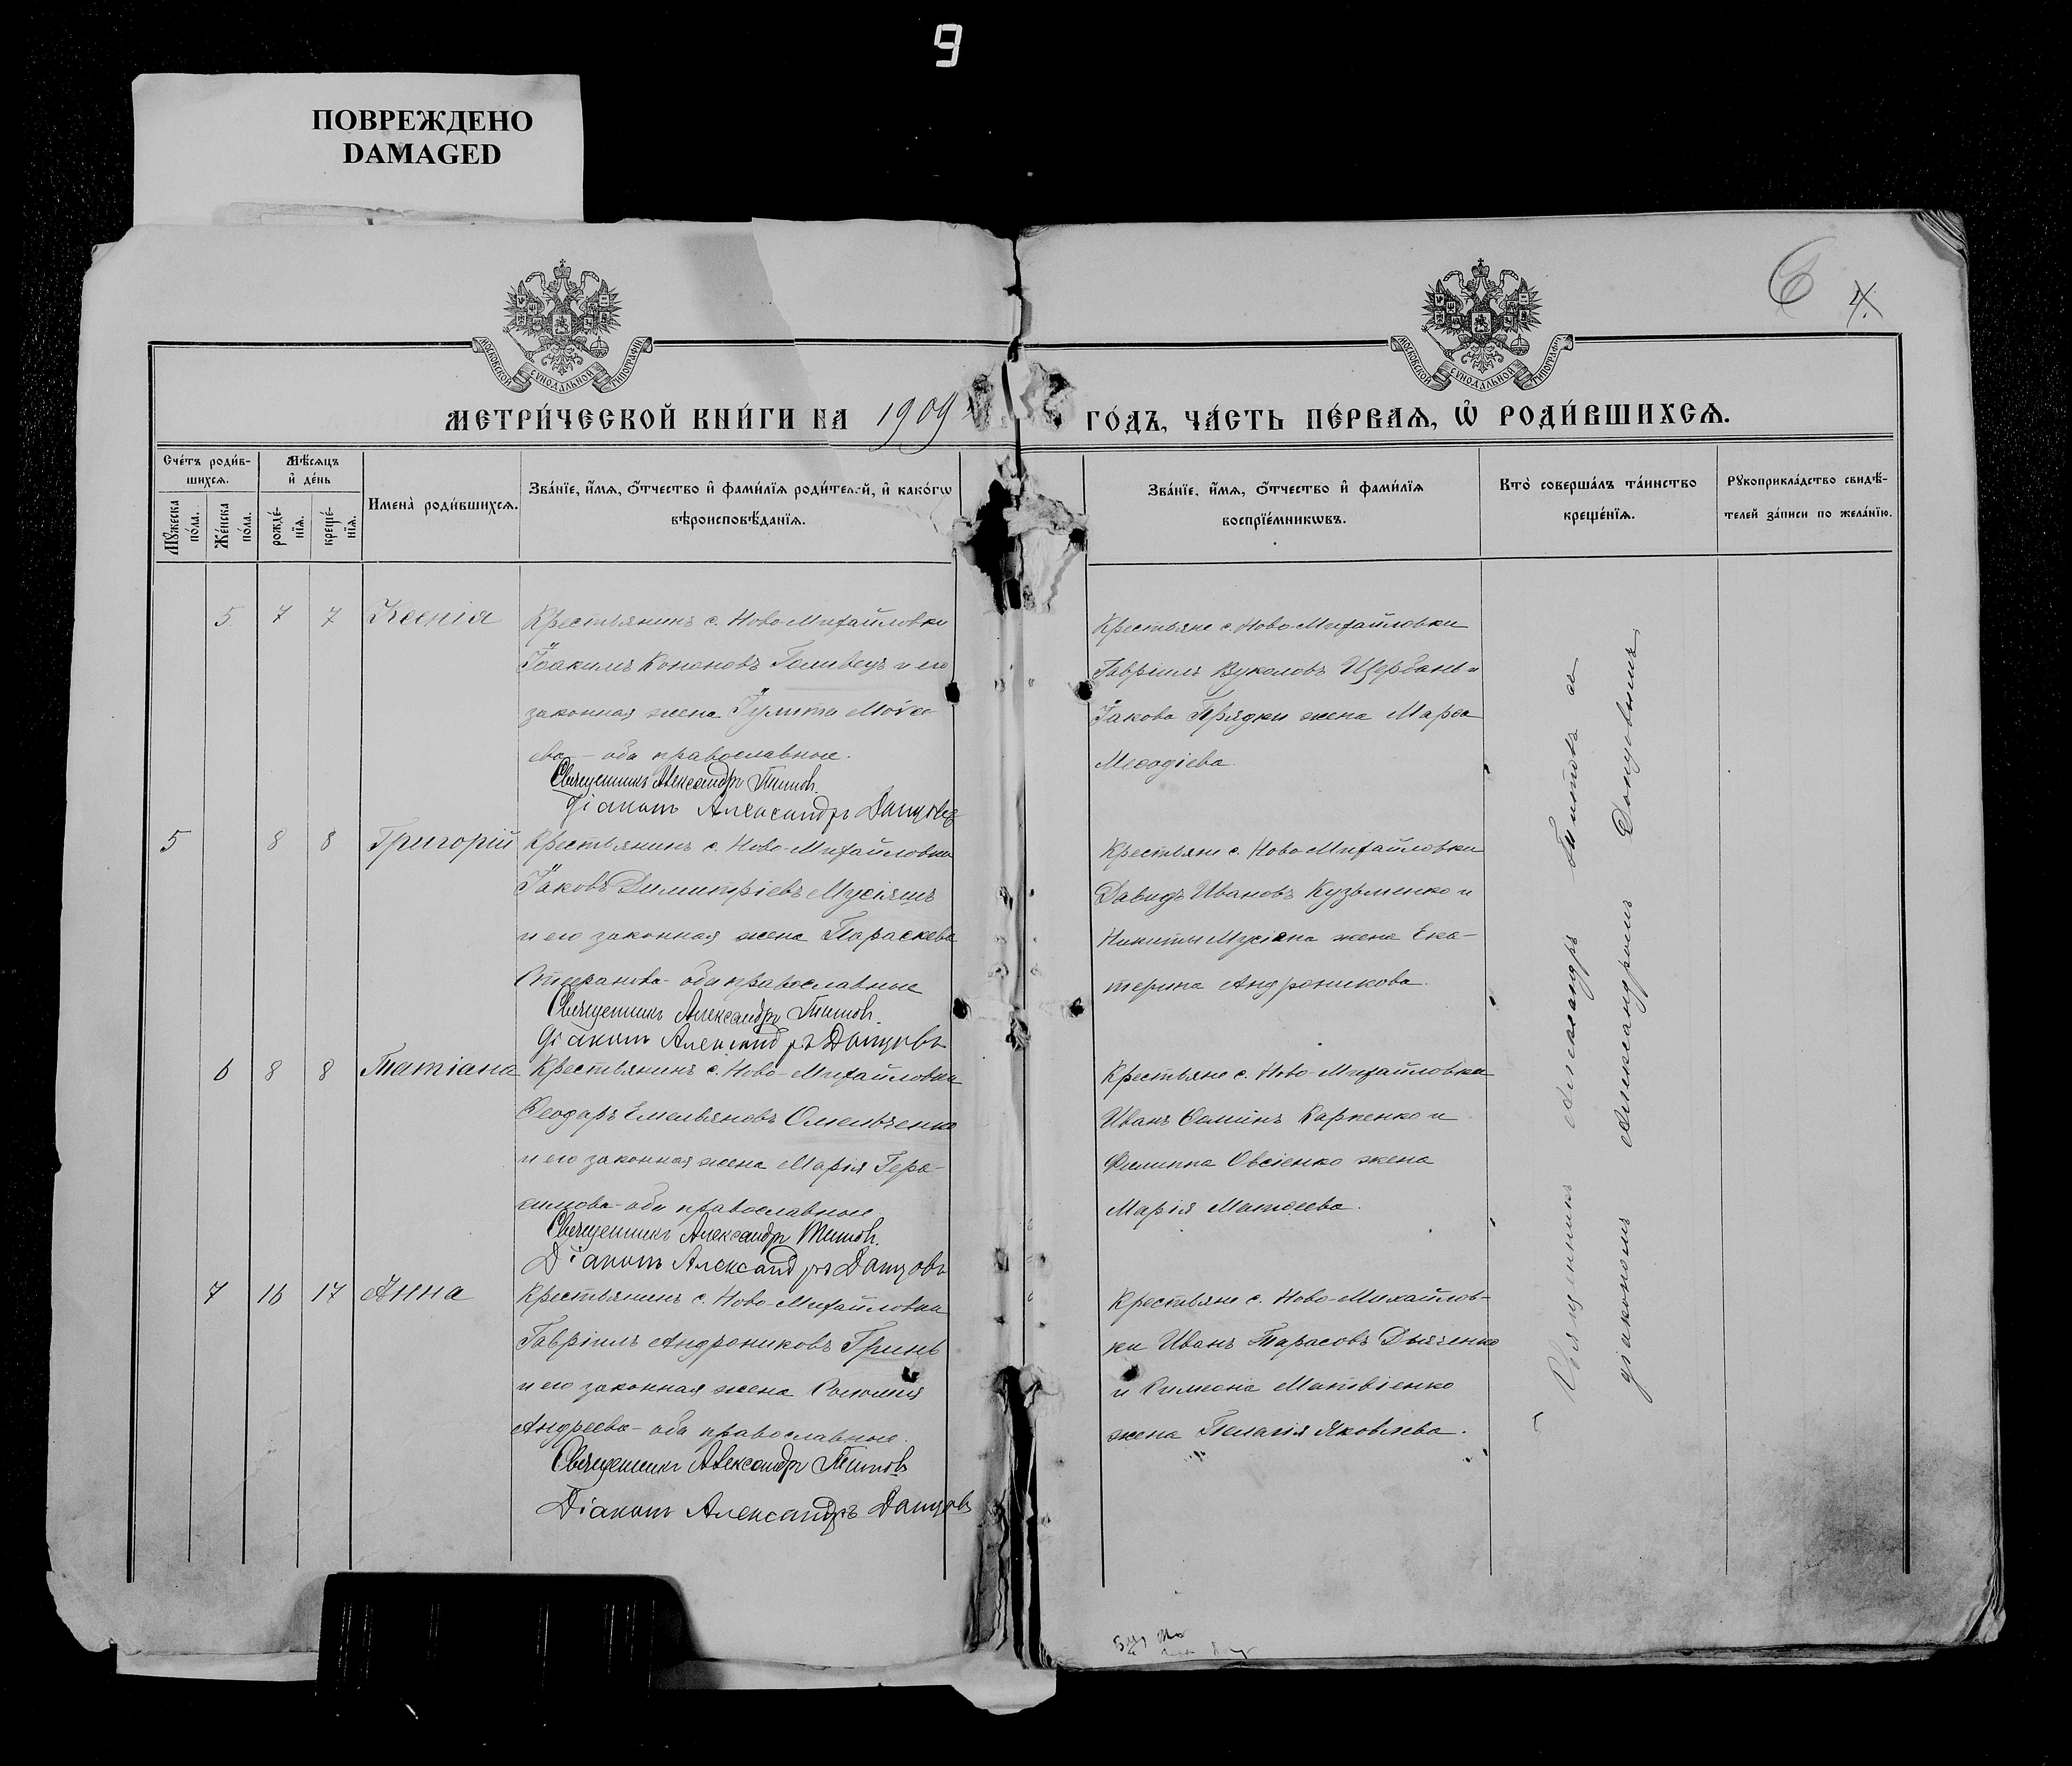 9
ПОВРЕЖДЕНО
DAMAGED
6 7.
МОСКОВСКОЙ СѴНОДАЛЬНОЙ ТИПОГРАФІИ
МОСКОВСКОЙ СѴНОДАЛЬНОЙ ТИПОГРАФІИ
МЕТРИ́ЧЕСКОЙ КНИ́ГИ НА 1909 ГО́ДЪ, ЧА́СТЬ ПЕ́РВАѦ, Ѡ҆ РОДИ́ВШИХСѦ.
Сче́тъ роди́в-
шихсѧ.
Мꙋ́жеска по́ла.
Же́нска по́ла.
Мѣ́сѧцъ
и҆ де́нь
рожде́-
нїѧ.
креще́-
нїѧ.
Имена̀ роди́вшихсѧ.
Зва́нїе, и҆́мѧ, ѻ҆́тчество и҆ фами́лїѧ роди́телей, и҆ како́гѡ
вѣроисповѣ́данїѧ.
Зва́нїе, и҆́мѧ, ѻ҆́тчество и҆ фами́лїѧ
воспрїе́мникѡвъ.
Кто̀ соверша́лъ та́инство
креще́нїѧ.
Рꙋкоприкла́дство свидѣ́-
телей за́писи по жела́нїю.
5 7 7 Ксенія
Крестьянинъ с. Ново-Михайловки
Іоакимъ Кононовъ Голивецъ и его
законная жена Іулитта Мойсе-
ева – оба православные.
Священникъ Александръ Титовъ.
Діаконъ Александръ Данцовъ
Крестьяне с. Ново-Михайловки
Гавріилъ Вуколовъ Щербань и
Іакова Прядки жена Марѳа
Меѳодіева.
5 8 8 Григорій
Крестьянинъ с. Ново-Михайловки
Іаковъ Димитріевъ Мусіяшъ
и его законная жена Параскева
Стефанова – оба православные
Священникъ Александръ Титовъ.
Діаконъ Александръ Данцовъ
Крестьяне с. Ново Михайловки
Давидъ Ивановъ Кузьменко и
Никиты Мусіяша жена Ека-
терина Андроникова.
6 8 8 Татіана
Крестьянинъ с. Ново-Михайловки
Ѳеодоръ Емельяновъ Омельченко
и его законная жена Марія Гера-
симова – оба православные
Священникъ Александръ Титовъ.
Діаконъ Александръ Данцовъ
Крестьяне с. Ново-Михайловки
Иванъ Ѳоминъ Карпенко и
Филиппа Овсіенко жена
Марія Матѳеева.
7 16 17 Анна
Крестьянинъ с. Ново-Михайловки
Гавріилъ Андрониковъ Гринь
и его законная жена Соломія
Андреева – оба православные.
Священникъ Александръ Титовъ
Діаконъ Александръ Данцовъ
Крестьяне с. Ново-Михайлов-
ки Иванъ Тарасовъ Дьяченко
и Симеона Матвіенко
жена Пелагія Яковлева.
Священникъ Александръ Титовъ съ
діакономъ Александромъ Данцовымъ